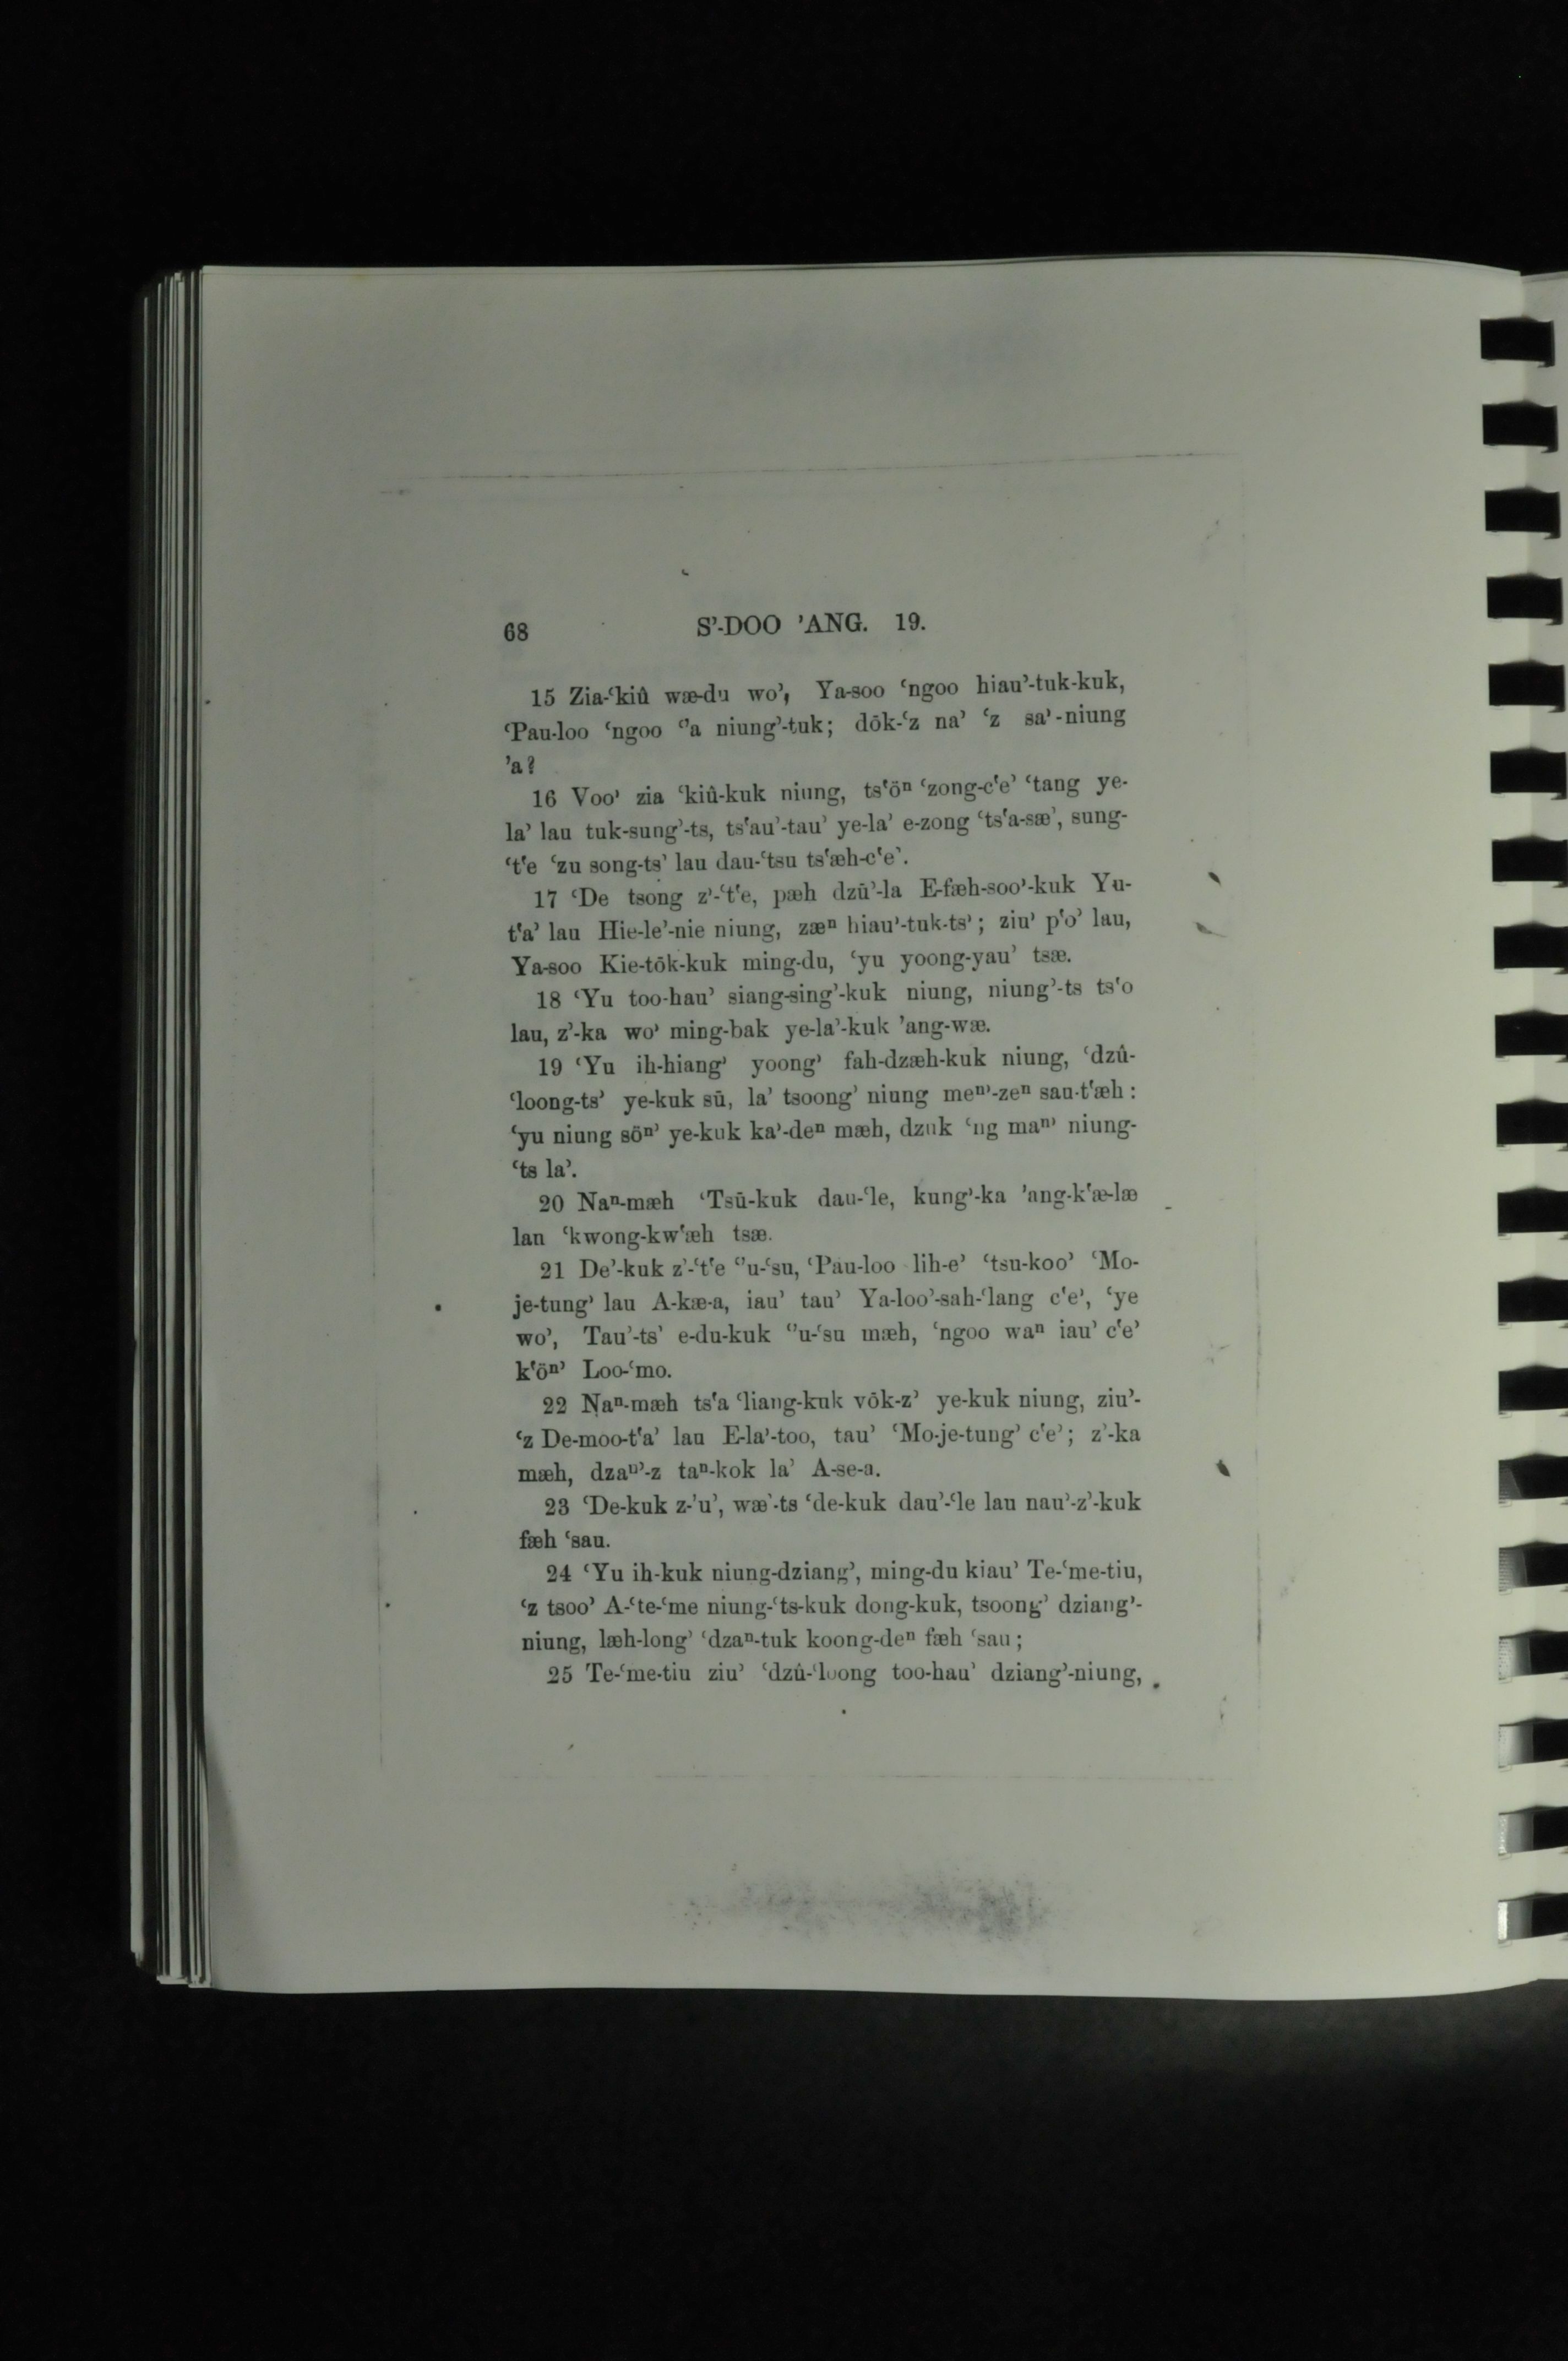 68 S’-DOO ’ANG. 19.
15 Zia-‘kiû wæ-du wo’, Ya-soo ‘ngoo hiau’-tuk-kuk,
‘Pau-loo ‘ngoo ‘’a niung’-tuk; dōk-‘z na’ ‘z sa’-niung
’a?
16 Voo’ zia ‘kiû-kuk niung, ts‘öⁿ ‘zong-c‘e’ ‘tang ye-
la’ lau tuk-sung’-ts, ts‘au’-tau’ ye-la’ e-zong ‘ts‘a-sæ’, sung-
‘t‘e ‘zu song-ts’ lau dau-‘tsu ts‘æh-c‘e’.
17 ‘De tsong z’-‘t‘e, pæh dzū’-la E-fæh-soo’-kuk Yu-
t‘a’ lau Hie-le’-nie niung, zæⁿ hiau’-tuk-ts’; ziu’ p‘o’ lau,
Ya-soo Kie-tōk-kuk ming-du, ‘yu yoong-yau’ tsæ.
18 ‘Yu too-hau’ siang-sing’-kuk niung, niung’-ts ts‘o
lau, z’-ka wo’ ming-bak ye-la’-kuk ’ang-wæ.
19 ‘Yu ih-hiang’ yoong’ fah-dzæh-kuk niung, ‘dzû-
‘loong-ts’ ye-kuk sū, la’ tsoong’ niung meⁿ’-zeⁿ sau-t‘æh:
‘yu niung söⁿ’ ye-kuk ka’-deⁿ mæh, dzuk ‘ng maⁿ’ niung-
‘ts la’.
20 Naⁿ-mæh ‘Tsū-kuk dau-‘le, kung’-ka ’ang-k‘æ-læ
lau ‘kwong-kw‘æh tsæ.
21 De’-kuk z’-‘t‘e ‘’u-‘su, ‘Pau-loo lih-e’ ‘tsu-koo’ ‘Mo-
je-tung’ lau A-kæ-a, iau’ tau’ Ya-loo’-sah-‘lang c‘e’, ‘ye
wo’, Tau’-ts’ e-du-kuk ‘’u-‘su mæh, ‘ngoo waⁿ iau’ c‘e’
k‘öⁿ’ Loo-‘mo.
22 Naⁿ-mæh ts‘a ‘liang-kuk vōk-z’ ye-kuk niung, ziu’-
‘z De-moo-t‘a’ lau E-la’-too, tau’ ‘Mo-je-tung’ c‘e’; z’-ka
mæh, dzaⁿ’-z taⁿ-kok la’ A-se-a.
23 ‘De-kuk z-’u’, wæ’-ts ‘de-kuk dau’-‘le lau nau’-z’-kuk
fæh ‘sau.
24 ‘Yu ih-kuk niung-dziang’, ming-du kiau’ Te-‘me-tiu,
‘z tsoo’ A-‘te-‘me niung-‘ts-kuk dong-kuk, tsoong’ dziang’-
niung, læh-long’ ‘dzaⁿ-tuk koong-deⁿ fæh ‘sau;
25 Te-‘me-tiu ziu’ ‘dzû-‘loong too-hau’ dziang’-niung,